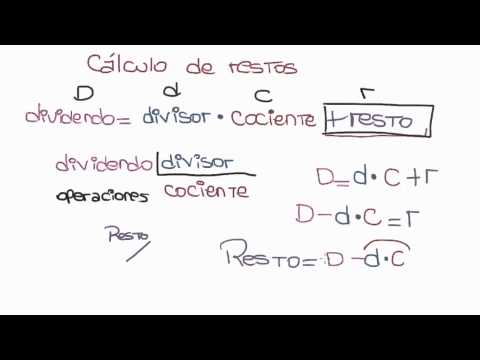 Cálculo de restos
D d C r
dividendo = divisor · cociente + resto
dividendo divisor
operaciones cociente
Resto
D = d · C + r
D - d · C = r
Resto = D - d · C